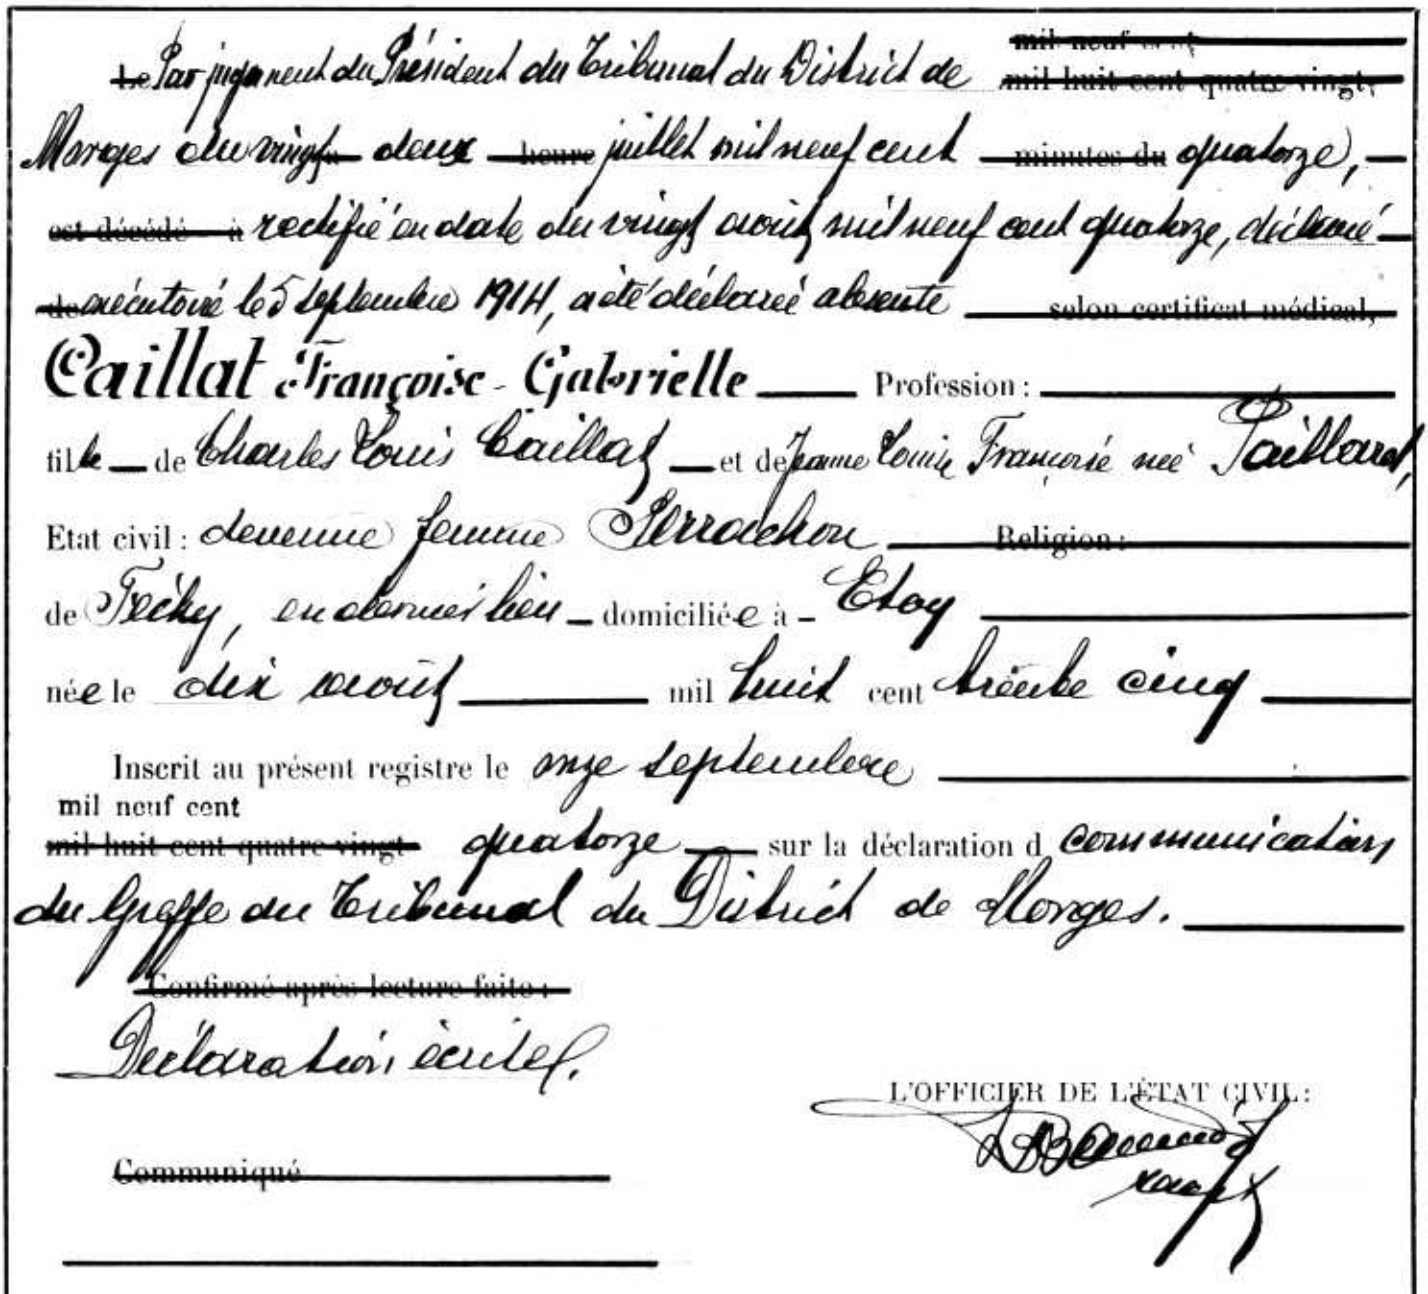 mil neuf cent
Le Par jugement du Président du Tribunal du District de mil huit cent quatre vingt,
Morges du vingt deux heure juillet mil neuf cent minutes du quatorze,
est décédé à rectifié en date du vingt août mil neuf cent quatorze, déclaré
de exécutoire le 5 septembre 1914, a été déclarée absente selon certificat médical,
Caillat Françoise-Gabrielle Profession:
fille de Charles Louis Caillat et de Jeanne Louise Françoise née Paillard,
Etat civil: devenue femme Perrochon Religion:
de Féchy, en dernier lieu domiciliée à Etoy
née le dix août mil huit cent trente cinq
Inscrit au présent registre le onze septembre
mil neuf cent
mil huit cent quatre vingt quatorze sur la déclaration d communication
du Greffe du Tribunal du District de Morges.
Confirmé après lecture faite:
Déclaration écrite.
L'OFFICIER DE L'ÉTAT CIVIL:
Communiqué